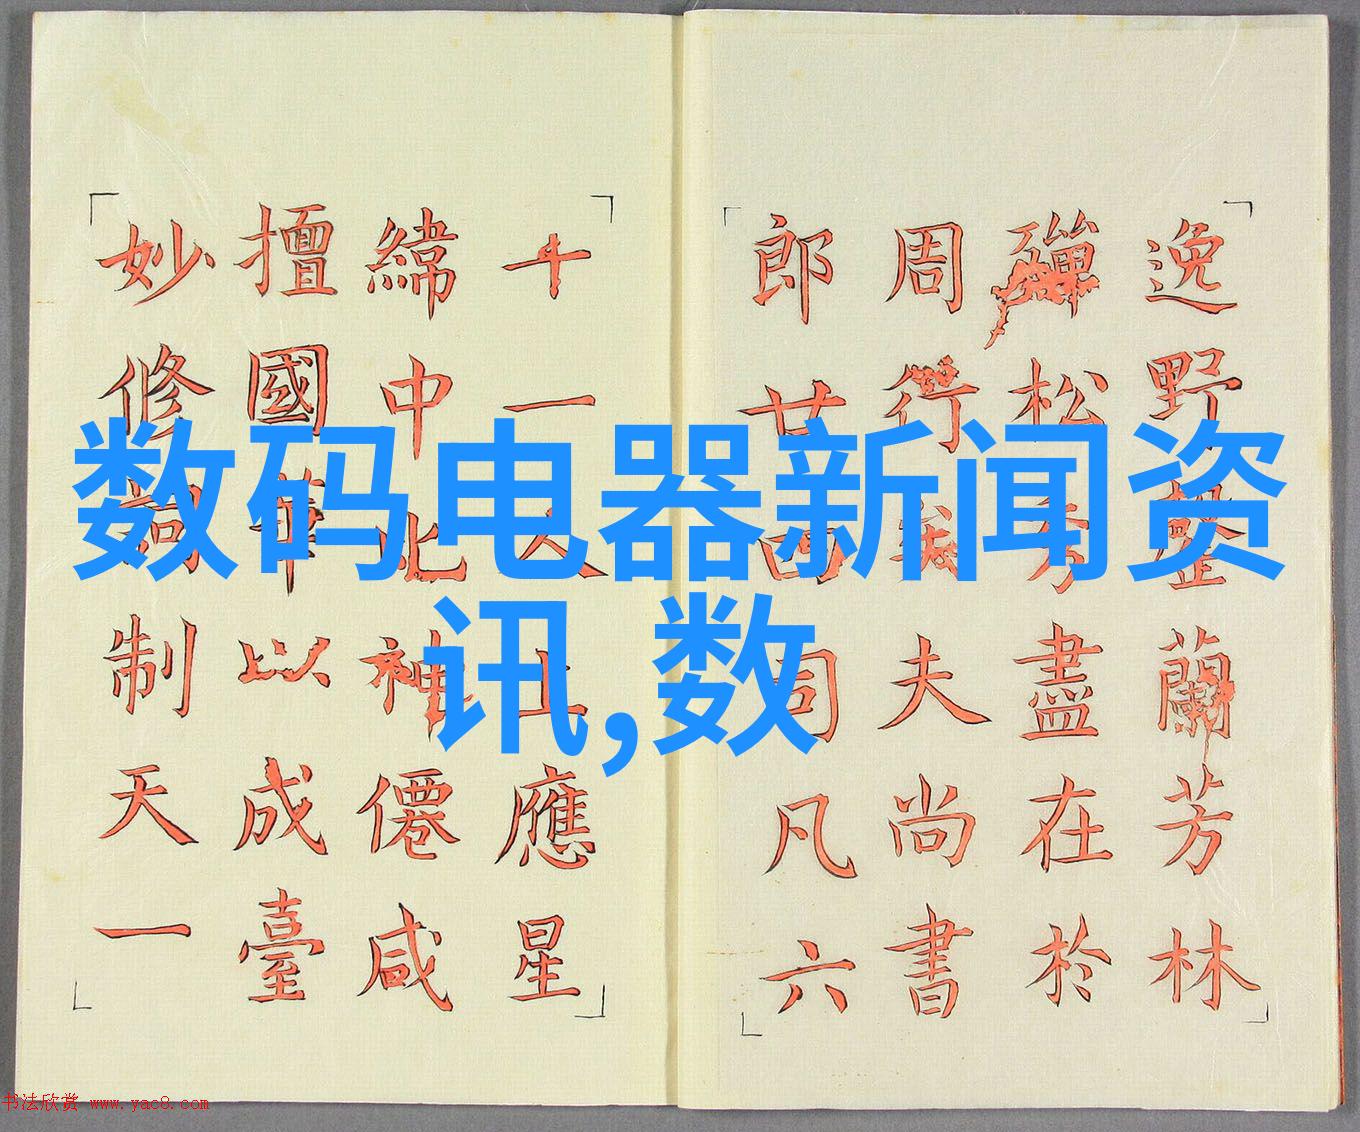 数码电器新闻资
讯,数
逸野蘭芳林
殫松盡在於
周行夫尚書
郎廿四司凡六
十一人上應星
緯中北神僊咸
擅國華以成臺
妙修制天一
书法欣赏 www.yac8.com